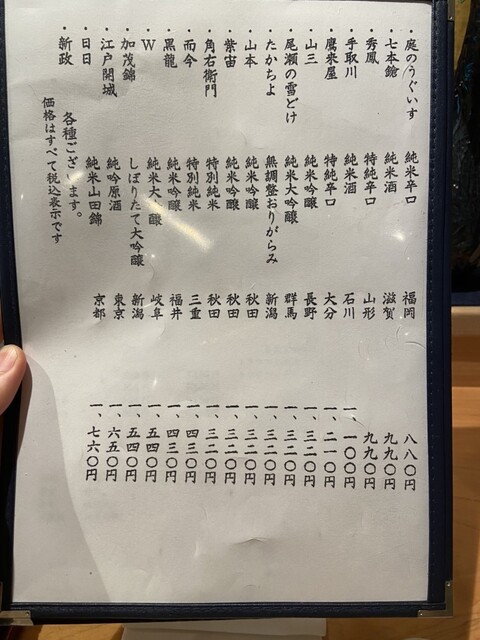 ・庭のうぐいす 純米辛口 福岡 八八〇円
・七本鎗 純米酒 滋賀 九九〇円
・秀鳳 特純辛口 山形 九九〇円
・手取川 純米酒 石川 一、一〇〇円
・鷹来屋 特純辛口 大分 一、二一〇円
・山三 純米吟醸 長野 一、三二〇円
・尾瀬の雪どけ 純米大吟醸 群馬 一、三二〇円
・たかちよ 無調整おりがらみ 新潟 一、三二〇円
・山本 純米吟醸 秋田 一、三二〇円
・紫宙 純米吟醸 秋田 一、三二〇円
・角右衛門 特別純米 秋田 一、三二〇円
・而今 特別純米 三重 一、四三〇円
・黒龍 純米吟醸 福井 一、四三〇円
・W 純米大吟醸 岐阜 一、五四〇円
・加茂錦 しぼりたて大吟醸 新潟 一、五四〇円
・江戸開城 純吟原酒 東京 一、六五〇円
・日日 純米山田錦 京都 一、七六〇円
・新政 各種ございます。
価格はすべて税込表示です